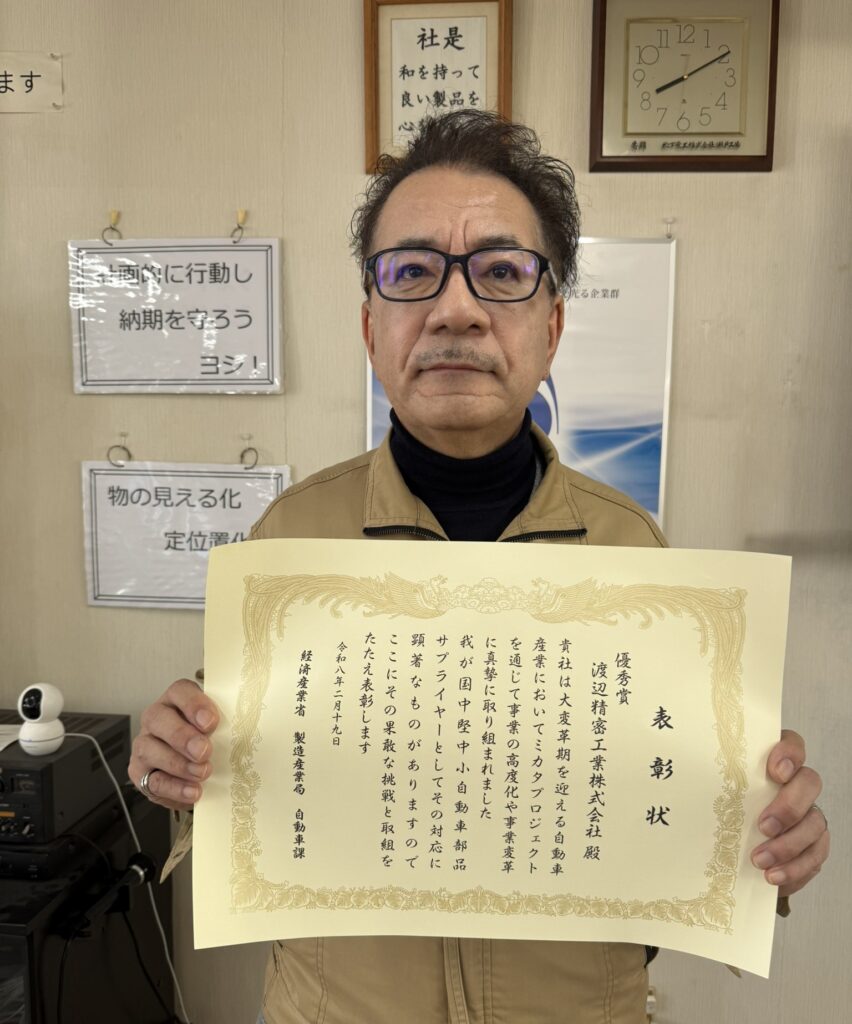 ます
社是
和を持って
良い製品を
心を
12
1
2
3
4
5
6
7
8
9
10
11
計画的に行動し
納期を守ろう
ヨシ！
光る企業群
物の見える化
定位置化
表彰状
優秀賞
渡辺精密工業株式会社 殿
貴社は大変革期を迎える自動車
産業においてミカタプロジェクト
を通じて事業の高度化や事業変革
に真摯に取り組まれました
我が国中堅中小自動車部品
サプライヤーとしてその対応に
顕著なものがありますので
ここにその果敢な挑戦と取組を
たたえ表彰します
令和八年二月十九日
経済産業省 製造産業局 自動車課